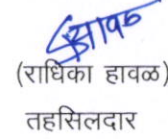 (राधिका हावळ)
तहसिलदार